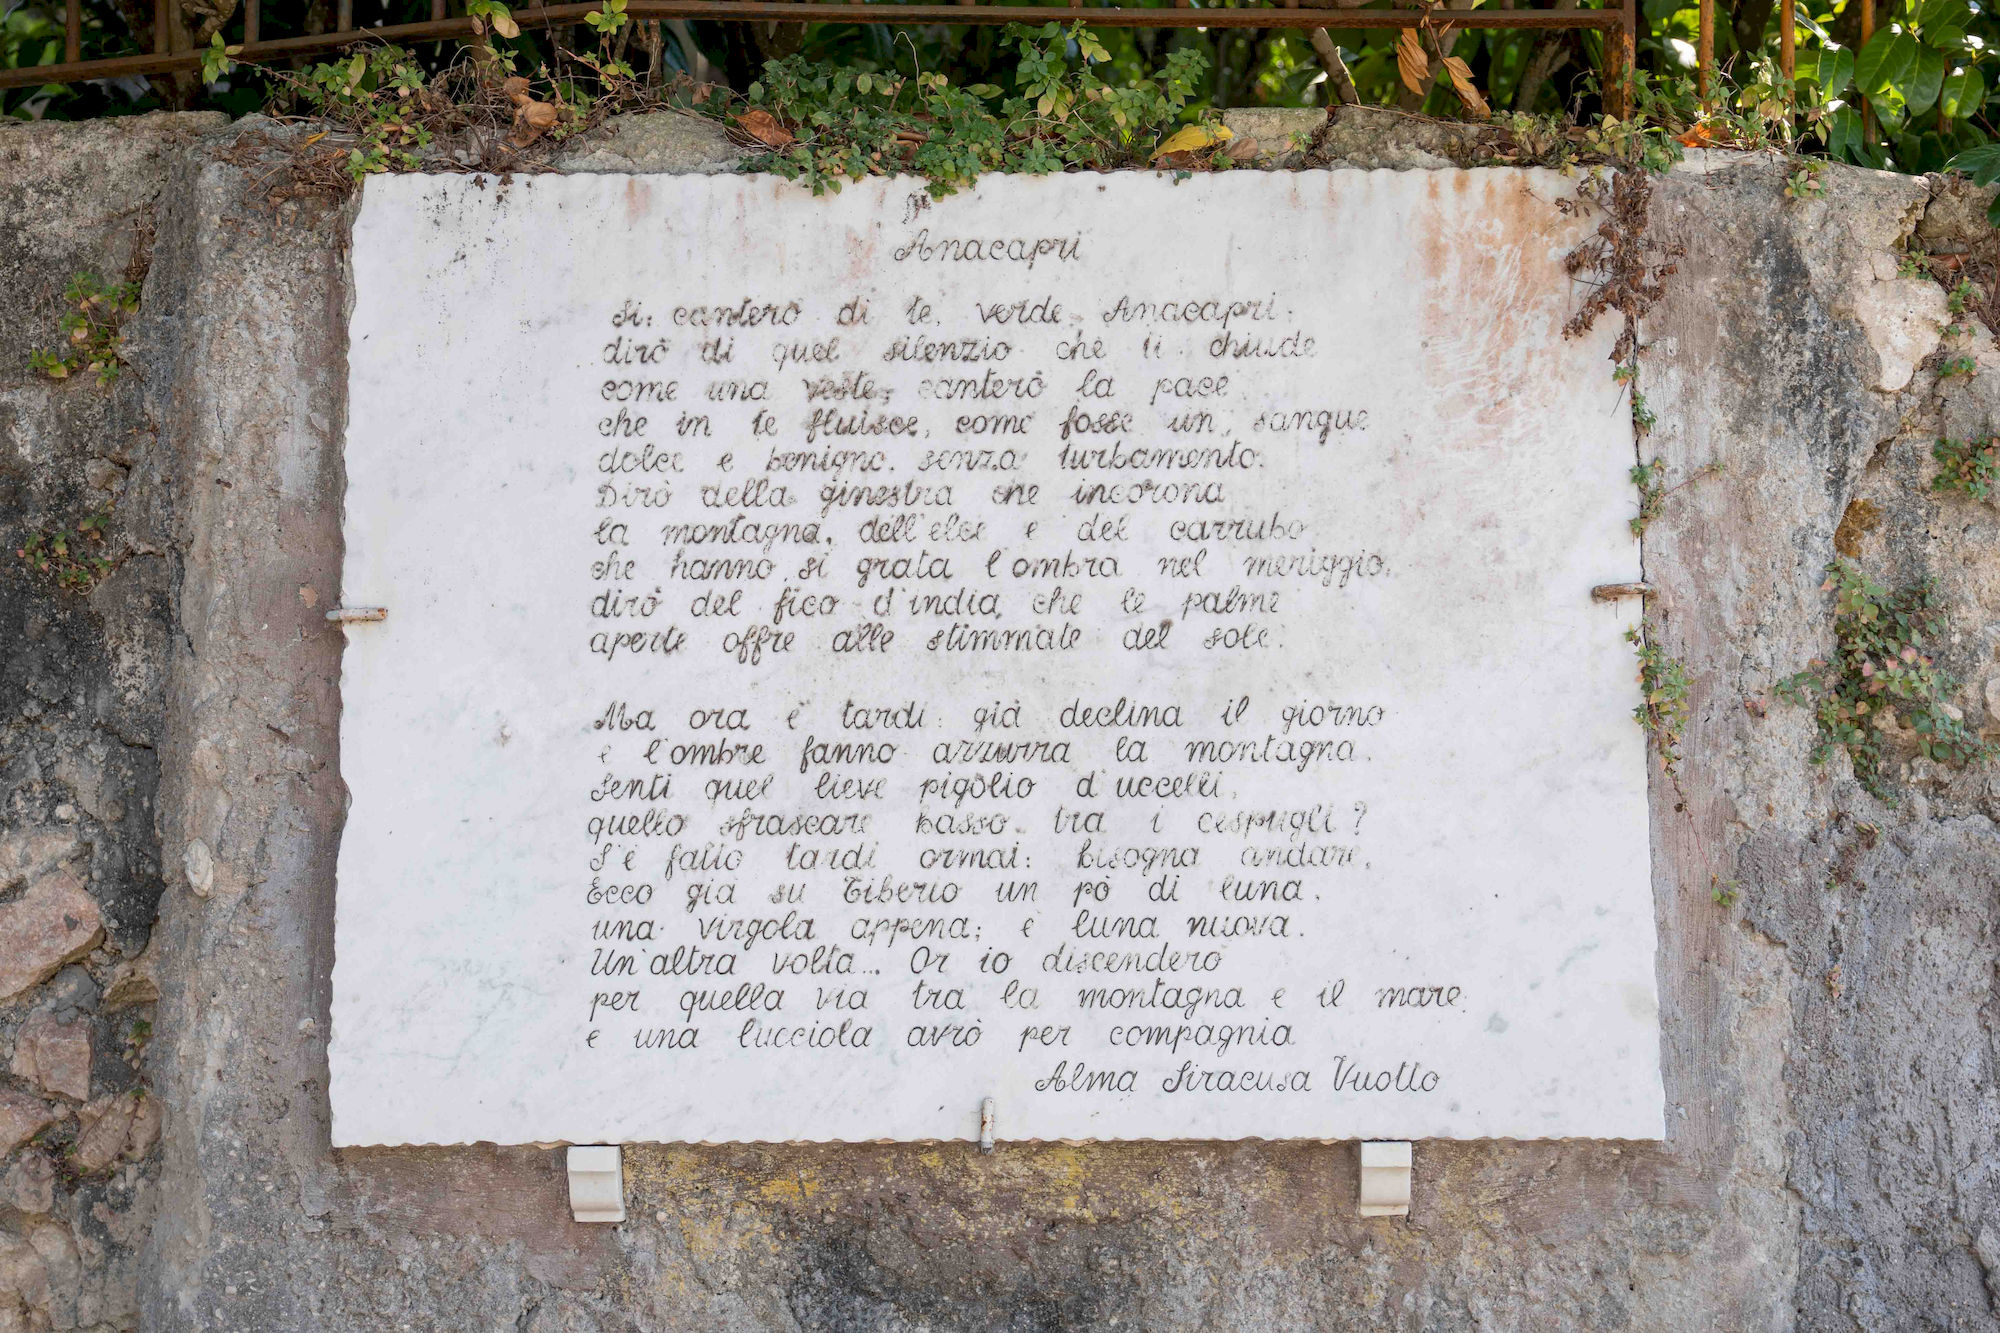 Anacapri
Si: canterò di te, verde Anacapri;
dirò di quel silenzio che ti chiude
come una veste, canterò la pace
che in te fluisce, come fosse un sangue
dolce e benigno, senza turbamento.
Dirò della ginestra che incorona
la montagna, dell'elce e del carrubo
che hanno sì grata l'ombra nel meriggio,
dirò del fico d'india che le palme
aperte offre alle stimmate del sole.
Ma ora è tardi: già declina il giorno
e l'ombre fanno azzurra la montagna.
Senti quel lieve pigolio d'uccelli,
quello sfrascare basso tra i cespugli?
S'è fatto tardi ormai: bisogna andare.
Ecco già su Tiberio un pò di luna,
una virgola appena; è luna nuova.
Un'altra volta... Or io discenderò
per quella via tra la montagna e il mare
e una lucciola avrò per compagnia
Alma Siracusa Vuotto